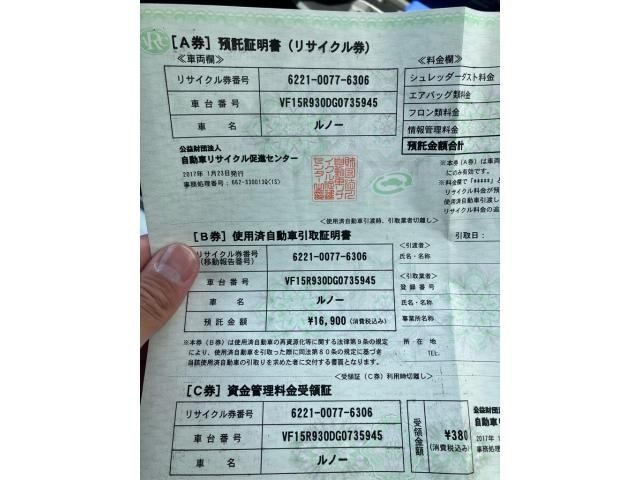 [A券] 預託証明書 (リサイクル券)
≪車両欄≫
≪料金欄≫
リサイクル券番号 6221-0077-6306
車台番号 VF15R930DG0735945
車名 ルノー
シュレッダーダスト料金
エアバッグ類料金
フロン類料金
情報管理料金
預託金額合計
公益財団法人
自動車リサイクル促進センター
2017年 1月23日発行
※本券(A券)は車両
にのみ有効です。
※料金欄で「*****」と
リサイクル料金が預
使用済自動車引渡し
リサイクル料金の追
<使用済自動車引渡時、引取業者切離し>
[B券] 使用済自動車引取証明書
引取日:
リサイクル券番号
(移動報告番号) 6221-0077-6306
車台番号 VF15R930DG0735945
車名 ルノー
預託金額 ¥16,900 (消費税込み)
<引渡者>
氏名・名称
<引取業者>
登録番号
氏名・名称
事業所名称
所在地
TEL.
※本券(B券)は使用済自動車の再資源化等に関する法律第9条の規定
により、使用済自動車を引取った際に同法第80条の規定に基づき
当該使用済自動車の引取りを求めた者に交付する書面となります。
<受領証(C券)利用時切離し>
[C券] 資金管理料金受領証
リサイクル券番号 6221-0077-6306
車台番号 VF15R930DG0735945
車名 ルノー
受領金額
¥380
(消費税込み)
公益財団法人
自動車リ
2017年 1